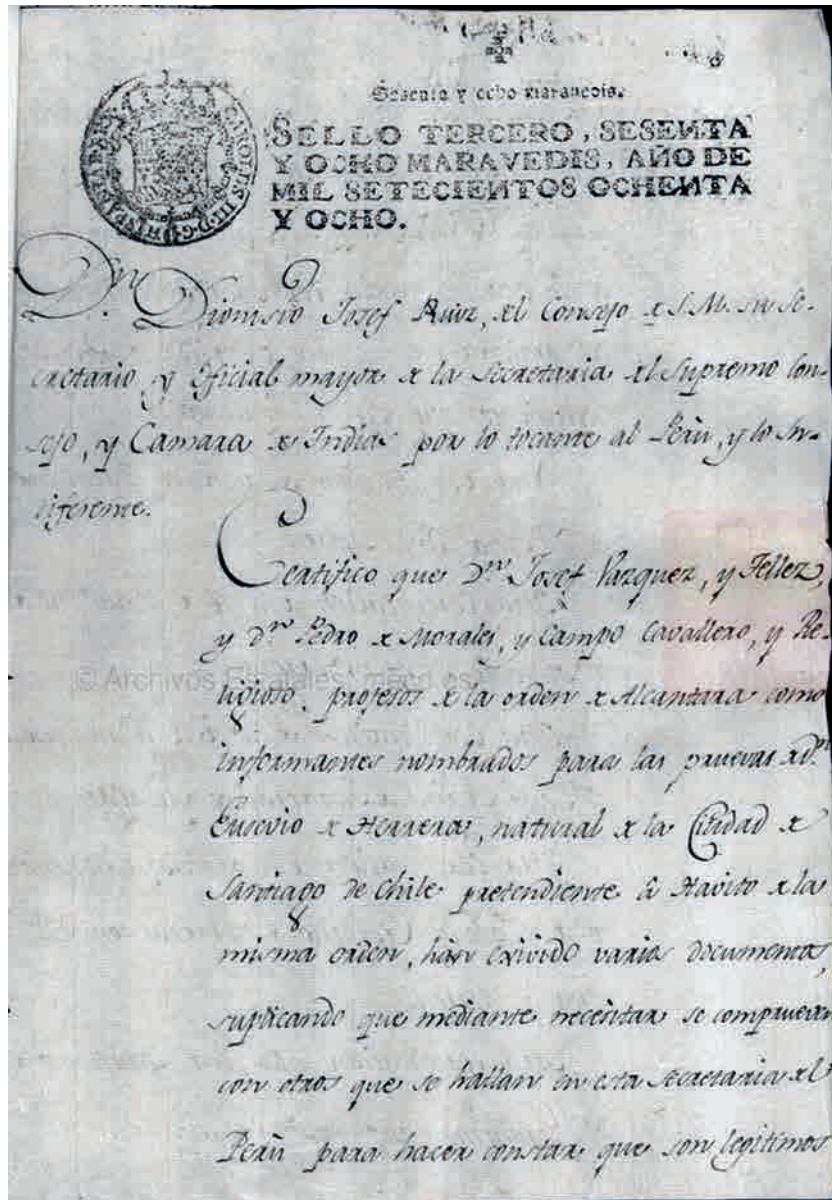 Sesenta y ocho maravedis.
SELLO TERCERO, SESENTA
Y OCHO MARAVEDIS, AÑO DE
MIL SETECIENTOS OCHENTA
Y OCHO.
CAROLUS III D G HISPANIAR REX
Dn. Dionisio Josef Ruiz, del Consejo de S.M. su Se-
cretario y Oficial mayor de la Secretaria del Supremo Con-
sejo, y Camara de Indias por lo tocante al Perù, y lo In-
diferente.
Certifico que Dn. Josef Vazquez, y Tellez,
y Dn. Pedro de Morales, y Campo Cavallero, y Re-
ligioso, profesos de la orden de Alcantara como
informantes nombrados para las pruevas de Dn.
Eusevio de Herrera, natural de la Ciudad de
Santiago de Chile pretendiente à Havito de la
misma orden, han exivido varios documentos,
suplicando que mediante necesitar se comprueven
con otros que se hallan en esta Secretaria del
Perù para hacer constar que son legitimos
© Archivos Estatales, mecd.es